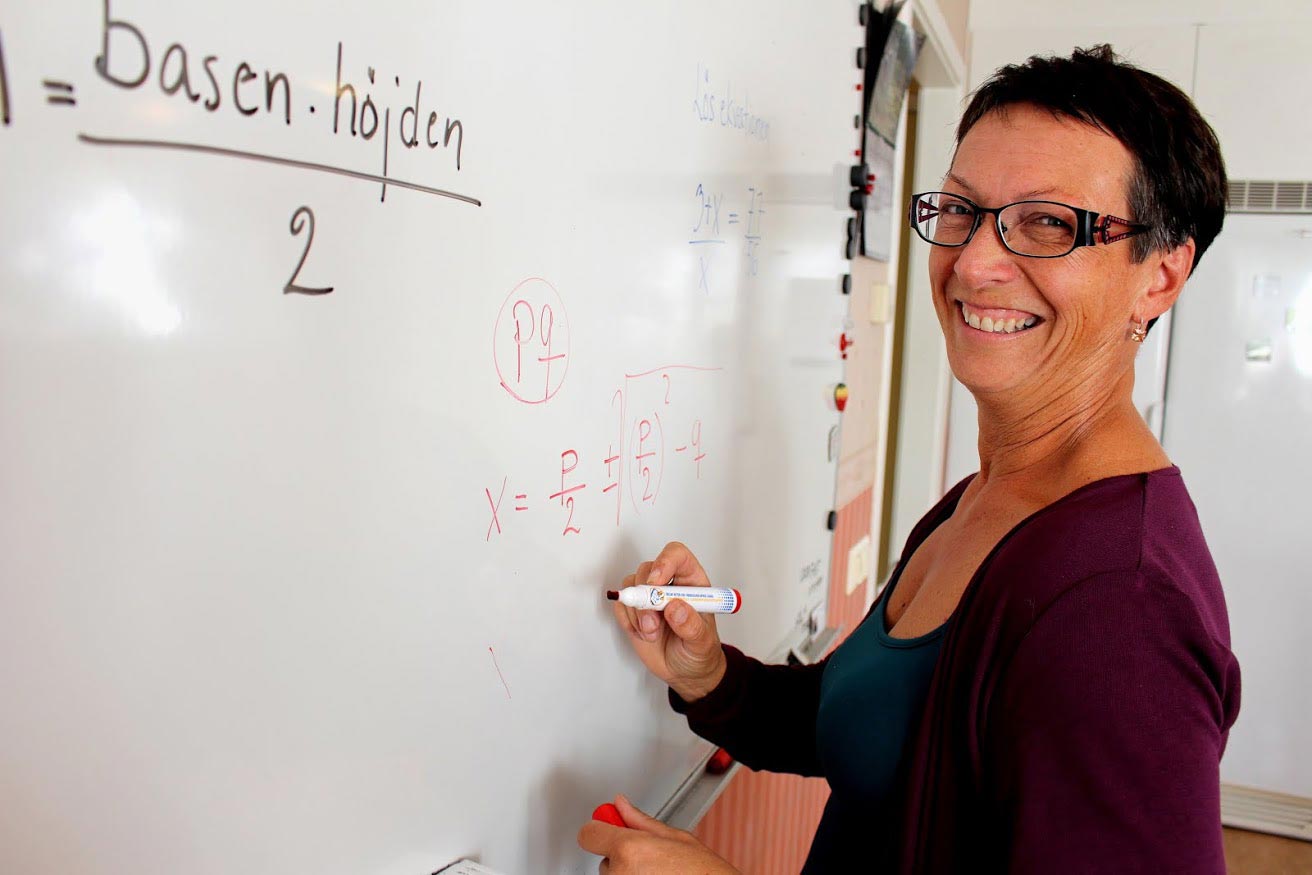 = basen · höjden
2
Lös ekvationen
3+x = 77
x 36
pq
x = p/2 ± √(p/2)² - q